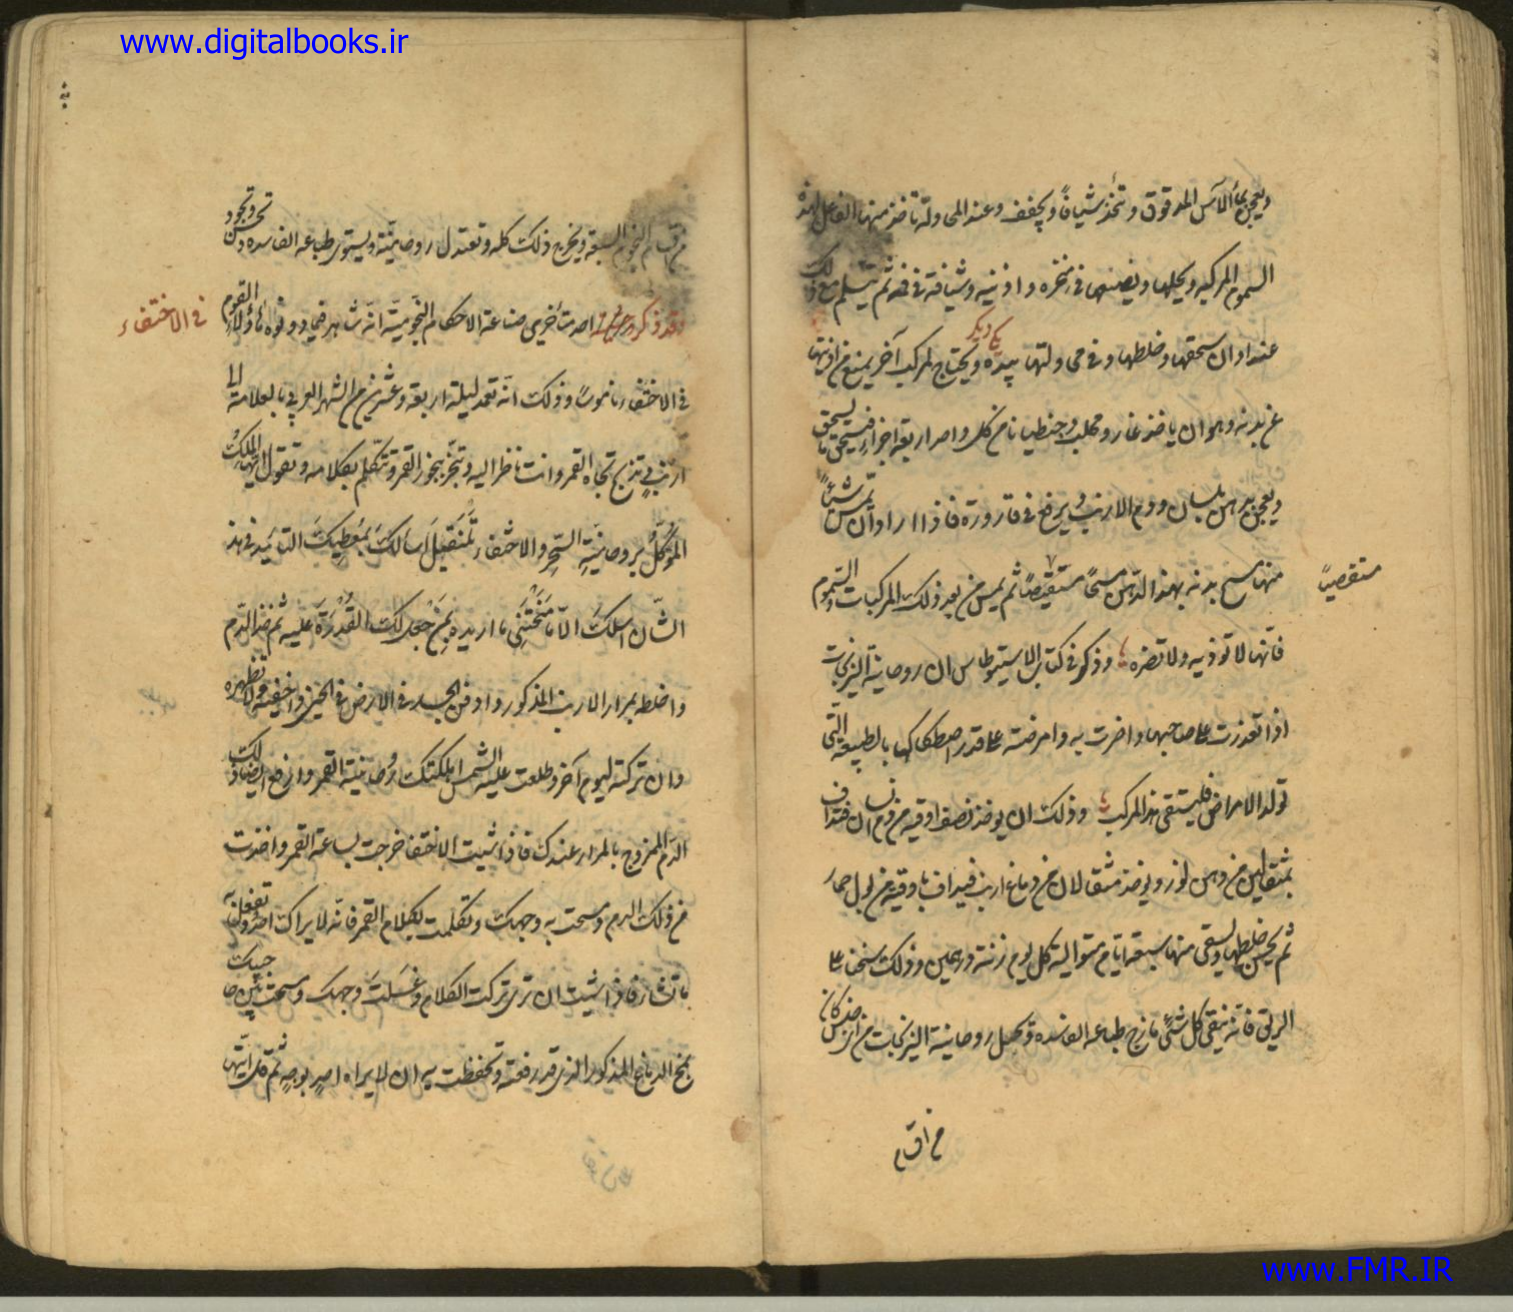 www.digitalbooks.ir
ويعجن بماء الآس المدقوق وتتخذ شيافاً ويجفف وعند المحاولة تأخذ منها الفاعل لهذه
السموم المركبه ويحلها ويضعها في منخره واذنيه وشيافة في فمه ثم يسلم مع ذلك
عند اوان سحقها وخلطها وفي محاولتها بيده ويحتاج لمركب آخر يمنع من اذيتها
يكديكر
عن بدنه وهو ان ياخذ غار ومحلب وجنطيانا من كل واحد اربعة اجزاء فيسحق
ويعجن بدهن بلسان ودم الارنب ويرفع في قارورة فاذا اراد ان يمس شيئاً
منها مسح بدنه بهذا الدهن مسحاً مستقيضاً ثم يمس من بعد ذلك المركبات والسموم
مستقصياً
فانها لا تؤذيه ولا تضره وذكر في كتاب الاسطيوطاس ان روحانية النيرنجات
اذا تعذرت على صاحبها واضرت به وامرضته على قدر اصطكاكها بالطبيعة التي
تولد الامراض فليستقى هذا المركب وذلك ان يوخذ نصف اوقيه من دم انسان فتداف
بمثقالين من دهن لوز ويوخذ مثقالان من دماغ ارنب فيداف باوقيه من بول حمار
ثم يحسن خلطها ويسقى منها سبعة ايام متوالية كل يوم زنة درهمين وذلك سخنا على
الريق فانه ينقي كل شئ مازج طباعه الفاسدة وتحيل روحانية النيرنجات من
من اقسام
من اقسام النجوم السبعة ويخرج ذلك كله وتعتدل روحانيته ويستوي طباعه الفاسده وتحسن وتجود
وقد ذكر احد متأخري صناعة الاحكام النجومية انه شاهد قيما وقوه هاؤلاء القوم
في الاختفاء
في الاختفاء ناموسا وذلك انه تعمد ليلة اربعة وعشرين من الشهر العربي بالعلامة الى
ارنب تذبح تجاه القمر وانت ناظر اليه وتبخر ببخور القمر وتتكلم بكلامه وتقول ايها الملك
الموكل بروحانية السحر والاختفاء
الشان اسئلك الا ما منحتني ما اريده بمن جعل لك القدرة عليه ثم خذ الدم
واخلطه بمرار الارنب المذكور وادفن الجسد في الارض في الحين واخفيه ولا تظهره
وان تركته ليوم آخر وطلعت عليه الشمس اهلكتك روحانية القمر وارفع ايضا ذلك
الدم الممزوج بالمرار عندك فاذا شئت الاختفا خرجت بساعة القمر واخذت
من ذلك الدم ومسحت به وجهك وتكلمت بكلام القمر فانه لا يراك احد وتفعل
ما تشاء فاذا شئت ان ترى تركت الكلام وغسلت وجهك ومسحت بين حاجبيك
بمخ الدماغ المذكور الذي قد رفعته وتحفظت به ان لا يراه احد بوجه ثم قل ايتها
www.FMR.IR